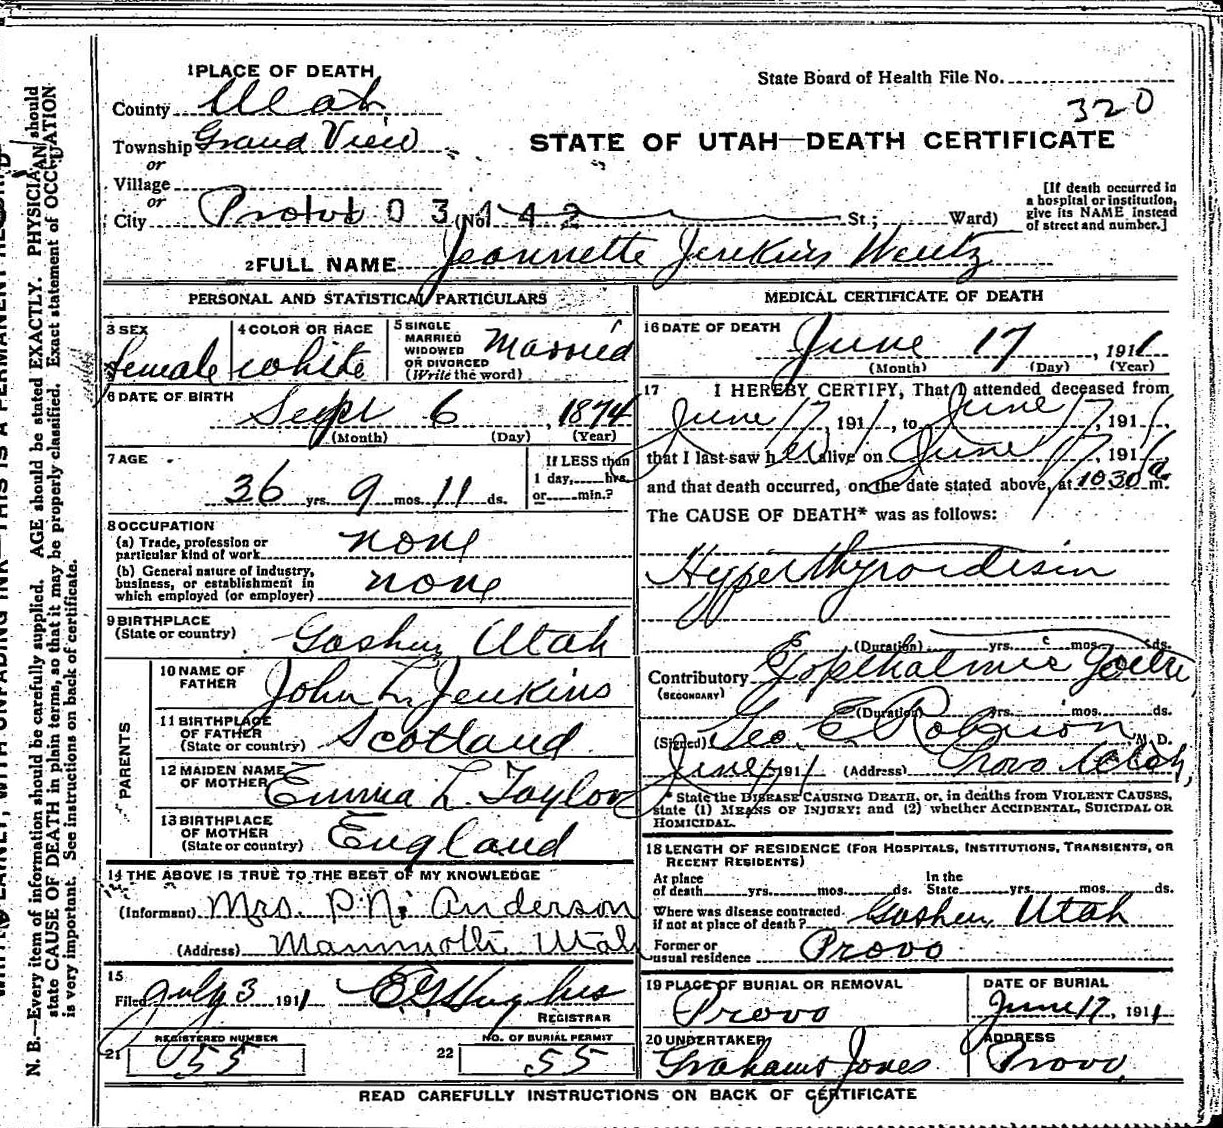 1 PLACE OF DEATH
State Board of Health File No.
County Utah
320
Township Grand View
STATE OF UTAH—DEATH CERTIFICATE
or
Village
or
City Provo 1103442 (No. St.; Ward)
[If death occurred in a hospital or institution, give its NAME instead of street and number.]
2 FULL NAME Jeannette Jenkins Wentz
PERSONAL AND STATISTICAL PARTICULARS
3 SEX female
4 COLOR OR RACE white
5 SINGLE MARRIED WIDOWED OR DIVORCED (Write the word) Married
6 DATE OF BIRTH
Sept 6, 1874
(Month) (Day) (Year)
7 AGE
36 yrs. 9 mos. 11 ds.
If LESS than 1 day, hrs. or min.?
8 OCCUPATION
(a) Trade, profession or particular kind of work none
(b) General nature of industry, business, or establishment in which employed (or employer) none
9 BIRTHPLACE
(State or country) Goshen Utah
PARENTS
10 NAME OF FATHER John L. Jenkins
11 BIRTHPLACE OF FATHER (State or country) Scotland
12 MAIDEN NAME OF MOTHER Emma L. Taylor
13 BIRTHPLACE OF MOTHER (State or country) England
14 THE ABOVE IS TRUE TO THE BEST OF MY KNOWLEDGE
(Informant) Mrs. P. N. Anderson
(Address) Mammoth Utah
15
Filed July 3 1911 E G Hughes
REGISTRAR
REGISTERED NUMBER
21 55
NO. OF BURIAL PERMIT
22 55
MEDICAL CERTIFICATE OF DEATH
16 DATE OF DEATH
June 17, 1911
(Month) (Day) (Year)
17 I HEREBY CERTIFY, That I attended deceased from
June 17, 1911, to June 17, 1911,
that I last saw her alive on June 17, 1911,
and that death occurred, on the date stated above, at 1030 a m.
The CAUSE OF DEATH* was as follows:
Hyperthyroidism
(Duration) yrs. mos. ds.
Contributory Exopthalmic Goitre
(SECONDARY)
(Duration) yrs. mos. ds.
(Signed) Geo E Robison, M. D.
June 17 1911 (Address) Provo Utah,
* State the DISEASE CAUSING DEATH, or, in deaths from VIOLENT CAUSES,
state (1) MEANS OF INJURY; and (2) whether ACCIDENTAL, SUICIDAL OR
HOMICIDAL.
18 LENGTH OF RESIDENCE (FOR HOSPITALS, INSTITUTIONS, TRANSIENTS, OR
RECENT RESIDENTS)
At place of death yrs. mos. ds. In the State yrs. mos. ds.
Where was disease contracted if not at place of death? Goshen, Utah
Former or usual residence Provo
19 PLACE OF BURIAL OR REMOVAL
Provo
DATE OF BURIAL
June 17, 1911
20 UNDERTAKER
Grahams Jones
ADDRESS
Provo
READ CAREFULLY INSTRUCTIONS ON BACK OF CERTIFICATE
N. B.—Every item of information should be carefully supplied. AGE should be stated EXACTLY. PHYSICIAN should
state CAUSE OF DEATH in plain terms, so that it may be properly classified. Exact statement of OCCUPATION
is very important. See instructions on back of certificate.